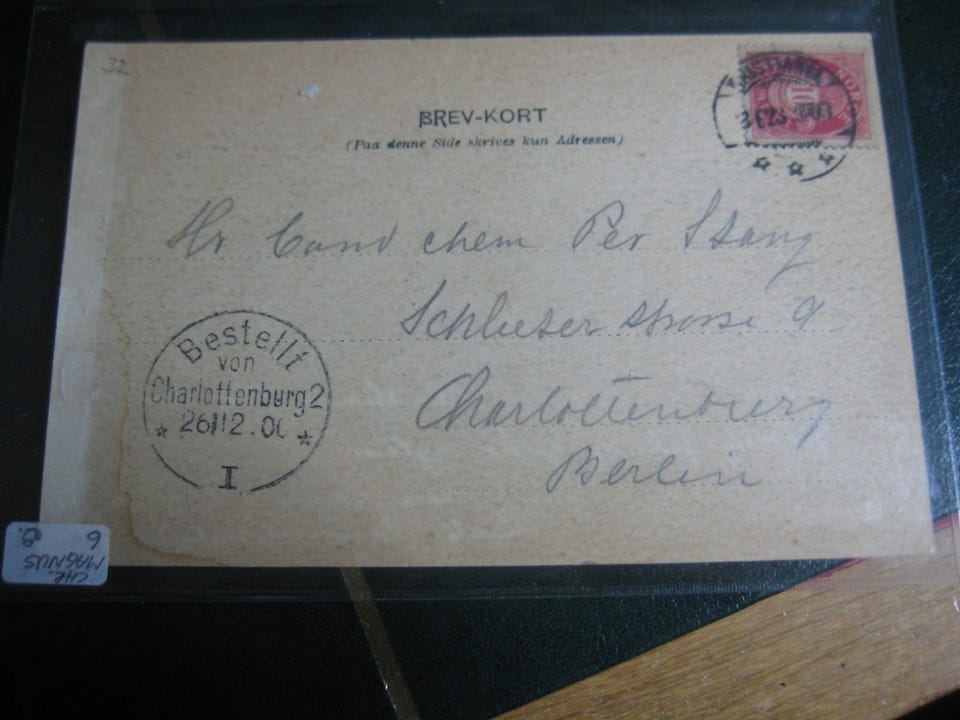 32
BREV-KORT
(Paa denne Side skrives kun Adressen)
KRISTIANIA
NOR
10
Hr Cand chem Per Stang
Schlüterstrasse 9
Charlottenburg
Berlin
Bestellt
von
Charlottenburg 2
26/12.00
I
CHR.
MAGNUS
B.
6